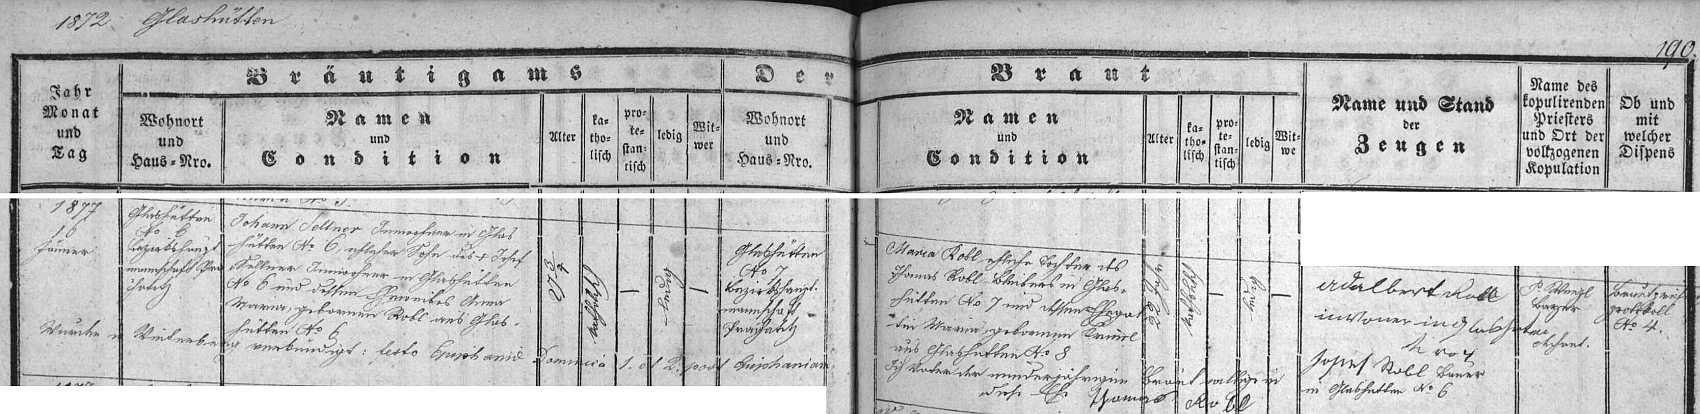 1872 Glashütten
190
Jahr
Monat
und
Tag
Bräutigams
Wohnort
und
Haus=Nro.
Namen
und
Condition
Alter
ka-
tho-
lisch
pro-
te-
stan-
tisch
ledig
Wit-
wer
Der
Wohnort
und
Haus=Nro.
Braut
Namen
und
Condition
Alter
ka-
tho-
lisch
pro-
te-
stan-
tisch
ledig
Wit-
we
Name und Stand
der
Zeugen
Name des
kopulirenden
Priesters
und Ort der
vollzogenen
Kopulation
Ob und
mit
welcher
Dispens
1877
16
Jänner
Glashütten
No 6
Bezirkshaupt
mannschaft
Johann Sellner Inwohner in Glas
hütten No 6, ehlicher Sohn des † Josef
Sellner Inwohner in Glashütten
No 6 und dessen Eheweibes Anna
Maria, gebornen Robl aus Glas-
hütten No 6
27
katholisch
ledig
Glashütten
No 7
Bezirkshaupt-
mannschaft
Maria Robl eheliche Tochter des
Thomas Robl in Glas-
hütten No 7 und dessen Ehegat
tin Maria, gebornen
aus Glashütten No 8
katholisch
ledig
Adalbert Robl
inwoner in Glashütten
No 7
Josef Robl Bauer
in Glashütten No 6
P. Weigl
No 4.
Wurde in verkündigt: festo Epiphaniae Dominica 1. et 2. post Epiphaniam
Ich Vater der minderjährigen Braut willige in
diese Ehe Thomas Robl
1877